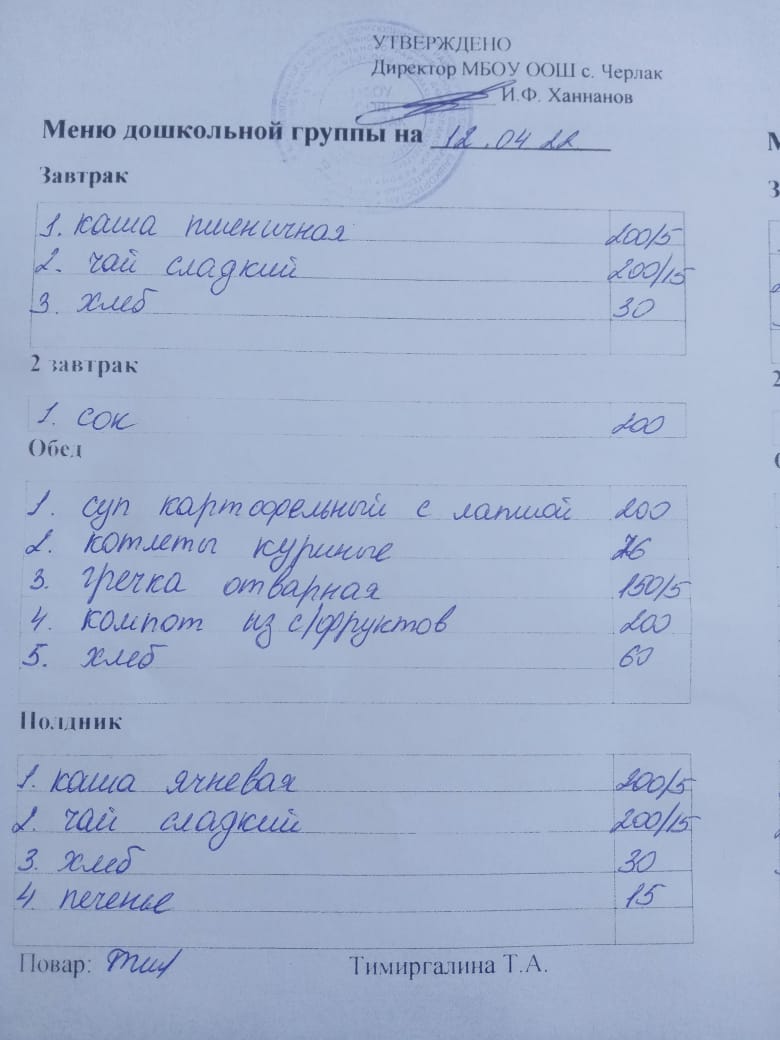 УТВЕРЖДЕНО
Директор МБОУ ООШ с. Черлак
И.Ф. Ханнанов
Меню дошкольной группы на 12.04 22
Завтрак
1. каша пшеничная 200/5
2. чай сладкий 200/15
3. хлеб 30
2 завтрак
1. сок 200
Обед
1. суп картофельный с лапшой 200
2. котлеты куриные 76
3. гречка отварная 150/5
4. компот из с/фруктов 200
5. хлеб 60
Полдник
1. каша ячневая 200/5
2. чай сладкий 200/15
3. хлеб 30
4. печенье 15
Повар: Тимиргалина Т.А.